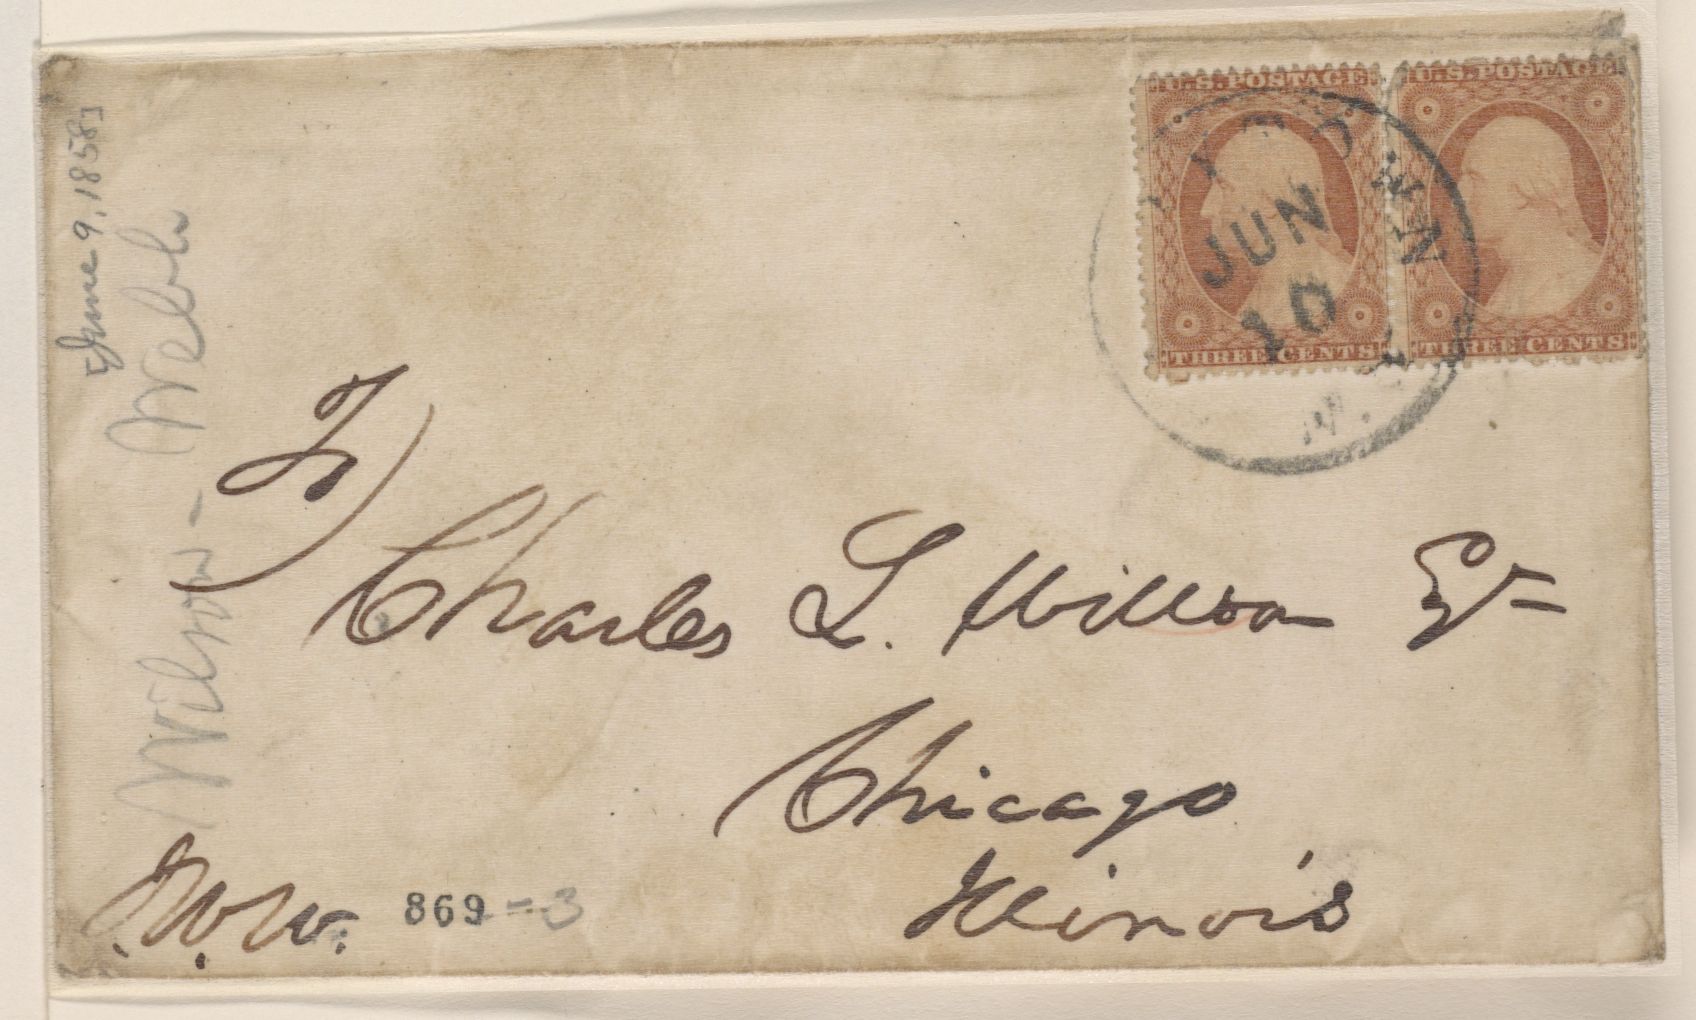 [June 9, 1858]
Wilson - Webb
U.S. POSTAGE
THREE CENTS
U.S. POSTAGE
THREE CENTS
JUN
10
To
Charles L. Willson Esqr
Chicago
Illinois
869-3